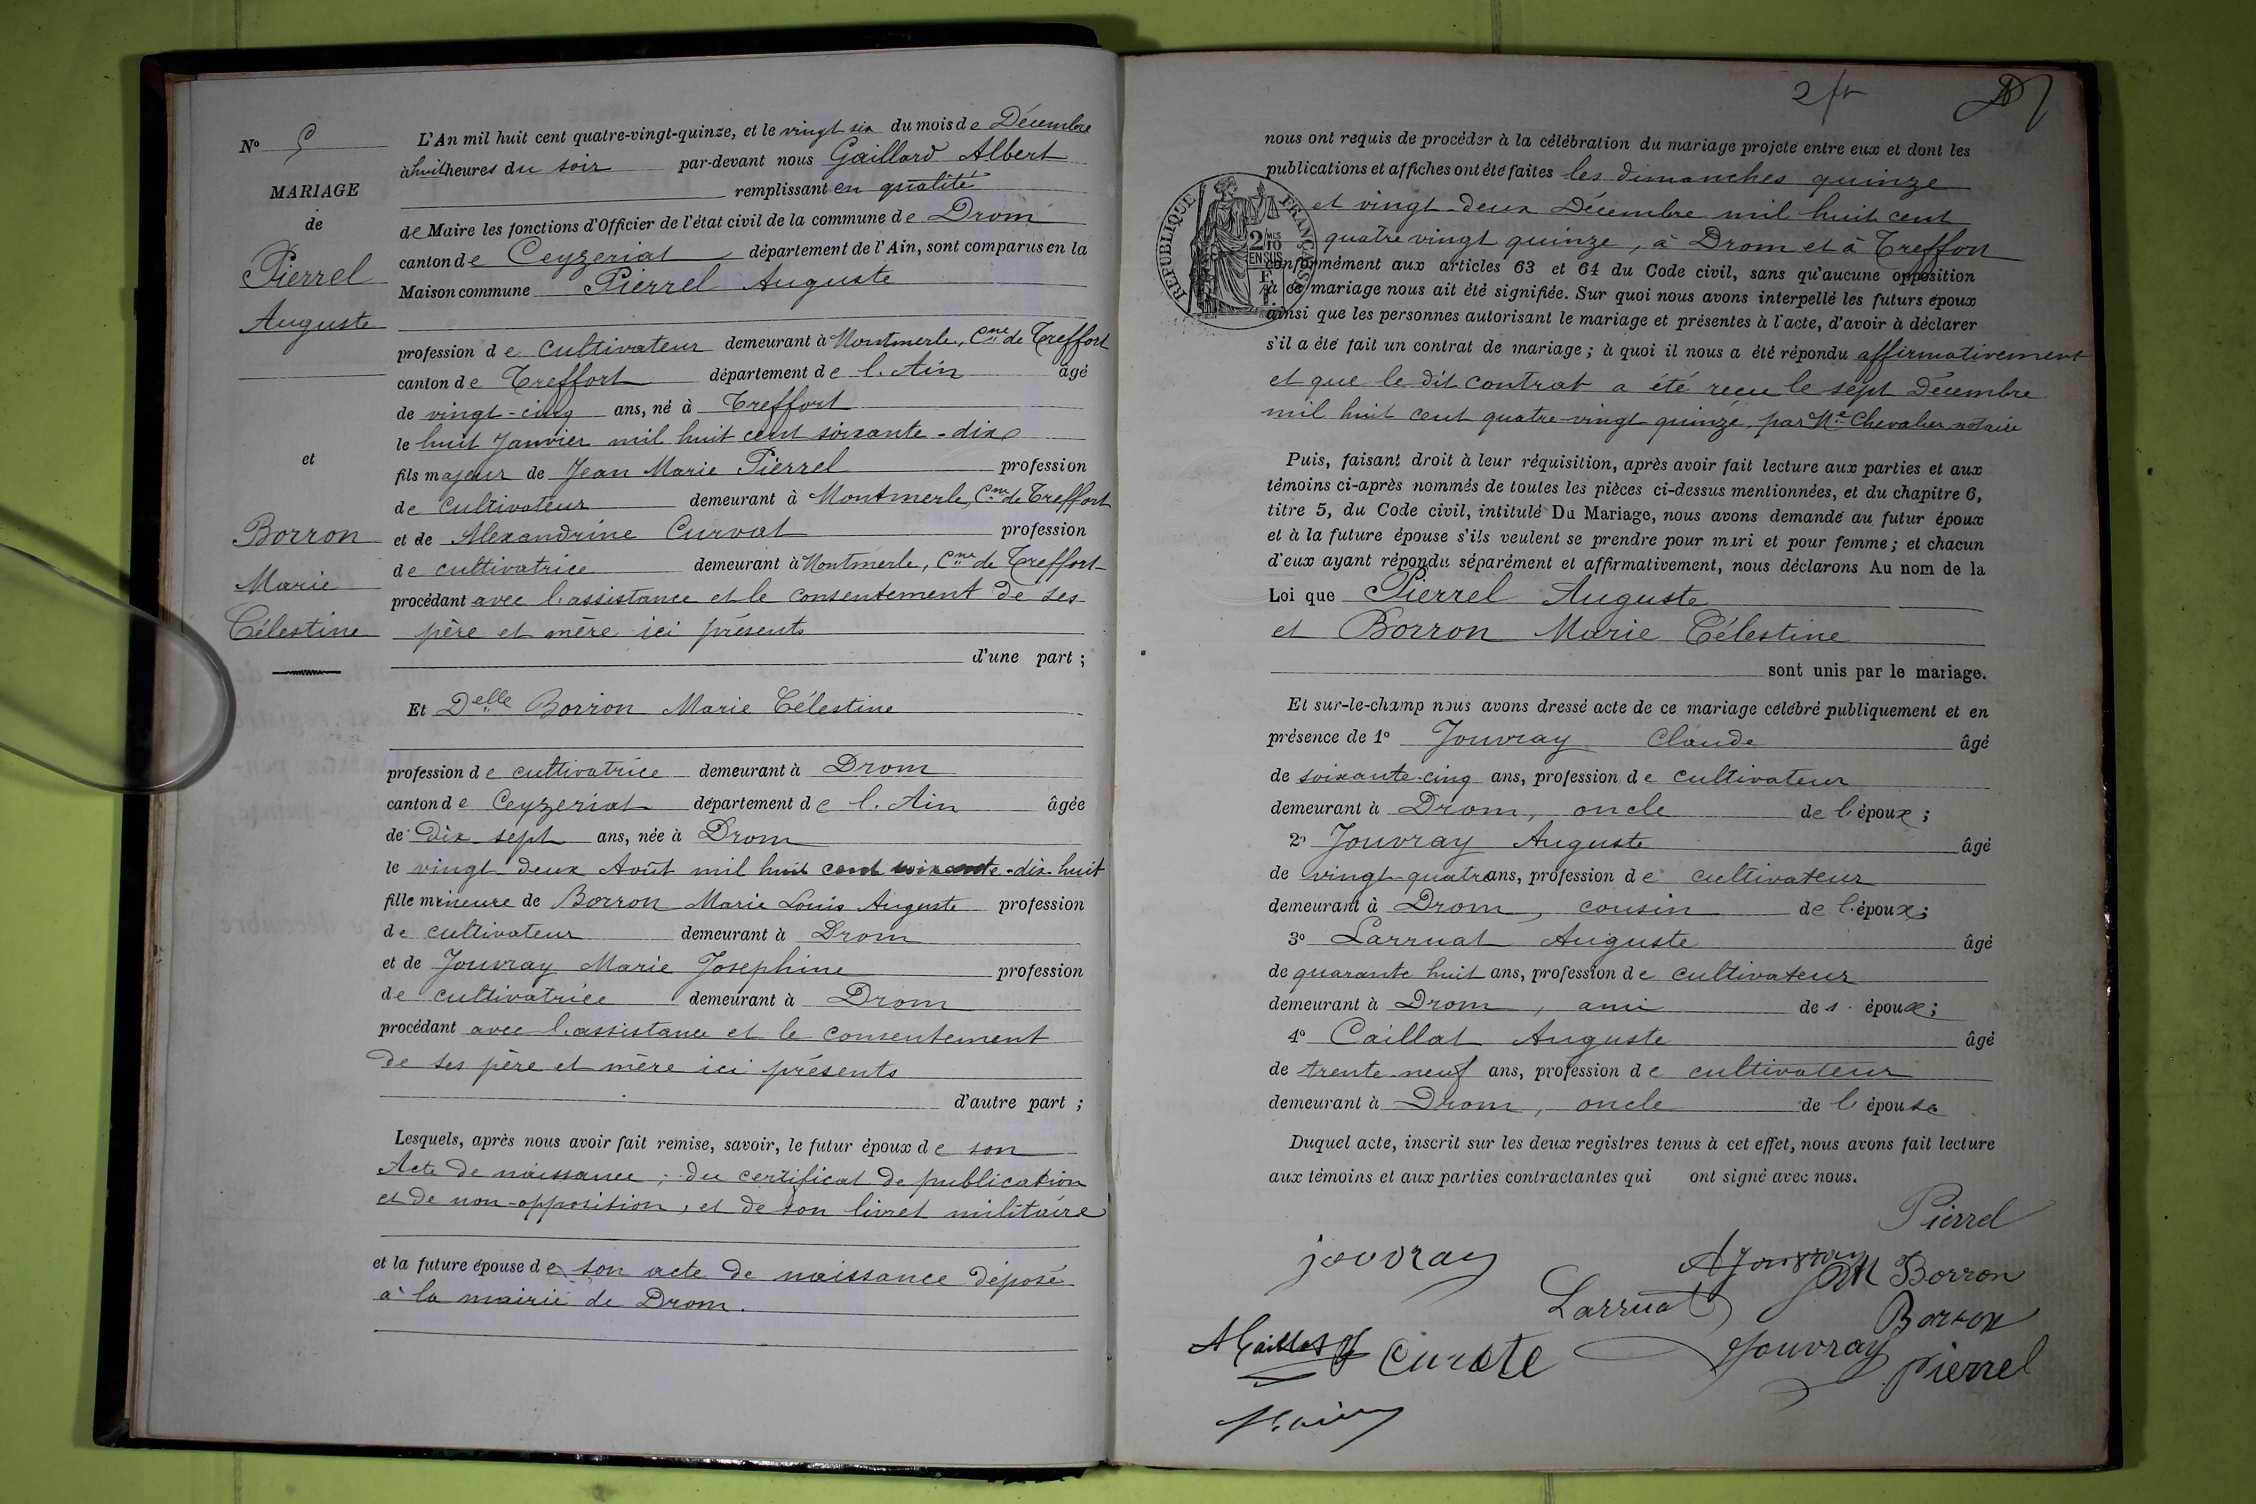 N° 9
MARIAGE
de
Pierrel
Auguste
et
Borron
Marie
Célestine
L'An mil huit cent quatre-vingt-quinze, et le vingt six du mois de Décembre
à huit heures du soir par-devant nous Gaillard Albert
remplissant en qualité
de Maire les fonctions d'Officier de l'état civil de la commune de Drom
canton de Ceyzeriat, département de l'Ain, sont comparus en la
Maison commune Pierrel Auguste
profession de cultivateur demeurant à Montmerle, Cne de Treffort
canton de Treffort département de l'Ain âgé
de vingt-cinq ans, né à Treffort
le huit Janvier mil huit cent soixante-dix
fils majeur de Jean Marie Pierrel profession
de cultivateur demeurant à Montmerle, Cne de Treffort
et de Alexandrine Curvat profession
de cultivatrice demeurant à Montmerle, Cne de Treffort
procédant avec l'assistance et le consentement de ses
père et mère ici présents
d'une part ;
Et Delle Borron Marie Célestine
profession de cultivatrice demeurant à Drom
canton de Ceyzeriat département de l'Ain âgée
de dix sept ans, née à Drom
le vingt-deux Août mil huit cent soixante-dix-huit
fille mineure de Borron Marie Louis Auguste profession
de cultivateur demeurant à Drom
et de Jouvray Marie Josephine profession
de cultivatrice demeurant à Drom
procédant avec l'assistance et le consentement
de ses père et mère ici présents
d'autre part ;
Lesquels, après nous avoir fait remise, savoir, le futur époux de son
Acte de naissance ; du certificat de publication
et de non-opposition, et de son livret militaire
et la future épouse de son acte de naissance déposé
à la mairie de Drom.
2 fr
nous ont requis de procéder à la célébration du mariage projeté entre eux et dont les
publications et affiches ont été faites les dimanches quinze
et vingt-deux Décembre mil huit cent
quatre vingt quinze, à Drom et à Treffort
RÉPUBLIQUE FRANÇAISE
2 MES 10 EN SUS
conformément aux articles 63 et 64 du Code civil, sans qu'aucune opposition
à ce mariage nous ait été signifiée. Sur quoi nous avons interpellé les futurs époux
ainsi que les personnes autorisant le mariage et présentes à l'acte, d'avoir à déclarer
s'il a été fait un contrat de mariage ; à quoi il nous a été répondu affirmativement
et que le dit contrat a été reçu le sept Décembre
mil huit cent quatre-vingt quinze, par Me Chevalier notaire
Puis, faisant droit à leur réquisition, après avoir fait lecture aux parties et aux
témoins ci-après nommés de toutes les pièces ci-dessus mentionnées, et du chapitre 6,
titre 5, du Code civil, intitulé Du Mariage, nous avons demandé au futur époux
et à la future épouse s'ils veulent se prendre pour mari et pour femme ; et chacun
d'eux ayant répondu séparément et affirmativement, nous déclarons Au nom de la
Loi que Pierrel Auguste
et Borron Marie Célestine
sont unis par le mariage.
Et sur-le-champ nous avons dressé acte de ce mariage célébré publiquement et en
présence de 1° Jouvray Claude âgé
de soixante-cinq ans, profession de cultivateur
demeurant à Drom, oncle de l'époux ;
2° Jouvray Auguste âgé
de vingt-quatre ans, profession de cultivateur
demeurant à Drom, cousin de l'époux ;
3° Larruat Auguste âgé
de quarante huit ans, profession de cultivateur
demeurant à Drom, ami des époux ;
4° Caillat Auguste âgé
de trente neuf ans, profession de cultivateur
demeurant à Drom, oncle de l'épouse
Duquel acte, inscrit sur les deux registres tenus à cet effet, nous avons fait lecture
aux témoins et aux parties contractantes qui ont signé avec nous.
Pierrel
jouvray
A Jouvray
M Borron
Larruat
Borron
A Caillat
Jouvray
Pierrel